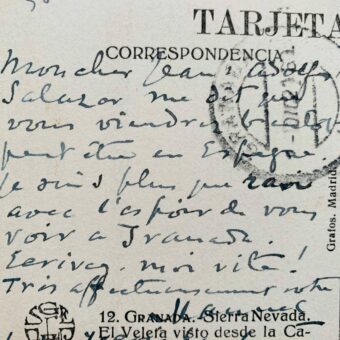 TARJETA
CORRESPONDENCIA
Mon cher Jean-Aubry
Salazar me dit que
vous viendrez
peut être en Espagne.
Je suis plus que ravi
avec l'espoir de vous
voir a Granada.
Ecrivez-moi vite!
Très affectueusement votre
Grafos. Madrid
12. GRANADA.-Sierra Nevada.
El Veleta visto desde la Ca-